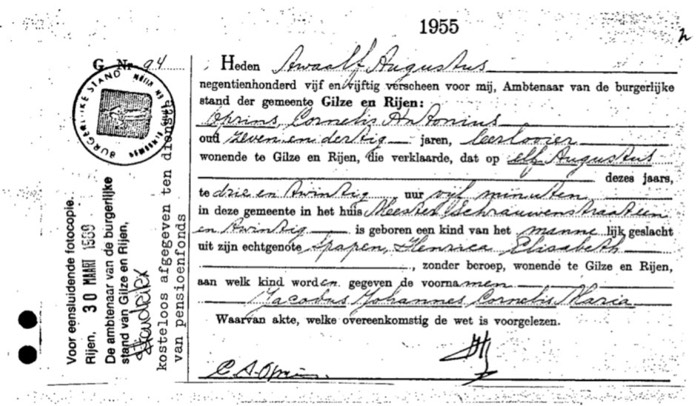 1955
G Nr 94
Heden Twaalf Augustus
negentienhonderd vijf en vijftig verscheen voor mij, Ambtenaar van de burgerlijke
stand der gemeente Gilze en Rijen:
Oprins, Cornelis Antonius
oud zeven en dertig jaren, leerlooier
wonende te Gilze en Rijen, die verklaarde, dat op elf Augustus
dezes jaars,
te drie en twintig uur vijf minuten
in deze gemeente in het huis Meester Schrauwenstraat een
en twintig is geboren een kind van het mannelijk geslacht
uit zijn echtgenote Spapen, Henrica Elisabeth
, zonder beroep, wonende te Gilze en Rijen,
aan welk kind worden gegeven de voornamen
Jacobus Johannes Cornelis Maria
Waarvan akte, welke overeenkomstig de wet is voorgelezen.
C A Oprins
BURGERLIJKE STAND
kosteloos afgegeven ten dienste
van pensioenfonds
Voor eensluidende fotocopie.
Rijen, 30 MAART
De ambtenaar van de burgerlijke
stand van Gilze en Rijen,